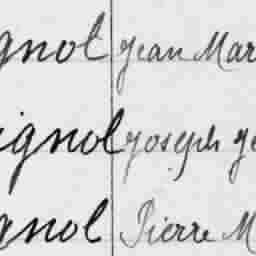 gnol Jean Mar
ignol Joseph Je
gnol Pierre M